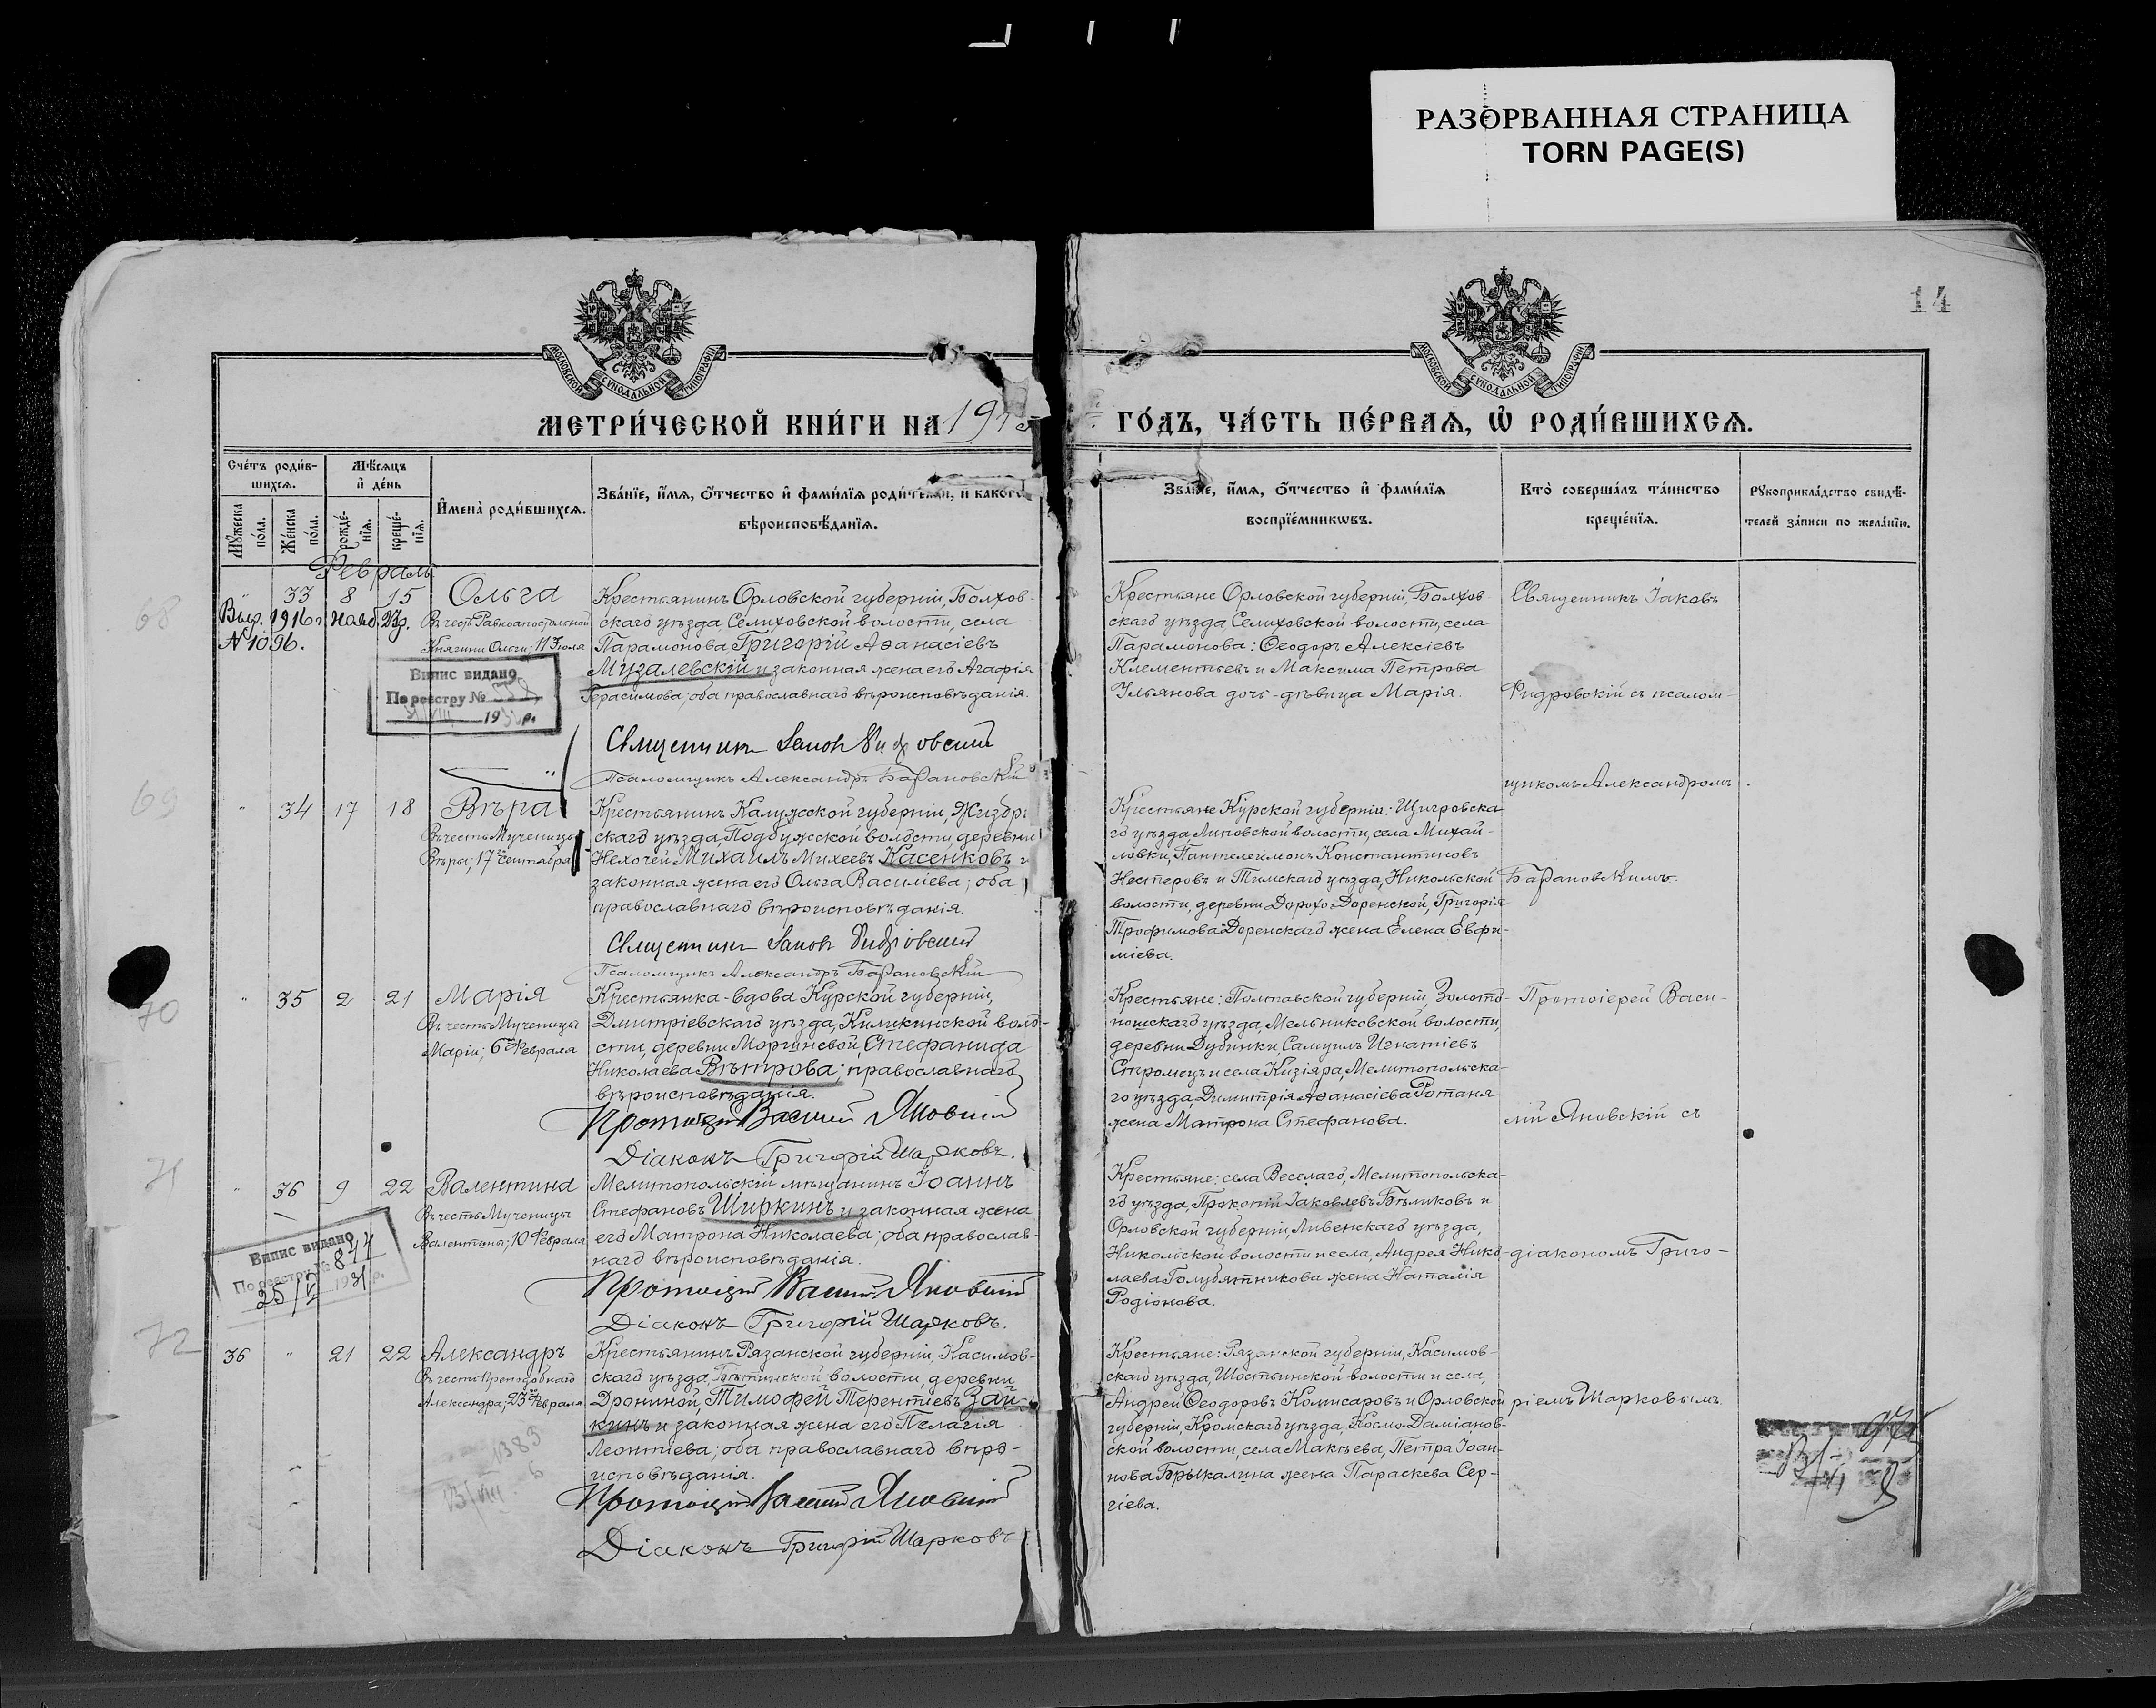 РАЗОРВАННАЯ СТРАНИЦА
TORN PAGE(S)
14
МОСКОВСКОЙ СУНОДАЛЬНОЙ ТИПОГРАФІИ
МОСКОВСКОЙ СУНОДАЛЬНОЙ ТИПОГРАФІИ
МЕТРИ́ЧЕСКОЙ КНИ́ГИ НА 191
ГО́ДЪ, ЧА́СТЬ ПЕ́РВАѦ, Ѡ҆ РОДИ́ВШИХСѦ.
Сче́тъ роди́в-
шихсѧ.
Мѣ́сѧцъ
и҆ де́нь
Мꙋ́жеска по́ла.
Же́нска по́ла.
рожде́-
нїѧ.
креще́-
нїѧ.
И҆мена̀ роди́вшихсѧ.
Зва́нїе, и҆́мѧ, ѻ҆́тчество и҆ фами́лїѧ роди́телей, и҆ како́гѡ
вѣроисповѣ́данїѧ.
Зва́нїе, и҆́мѧ, ѻ҆́тчество и҆ фами́лїѧ
воспрїе́мникѡвъ.
Кто̀ соверша́лъ та́инство
креще́нїѧ.
Рꙋкоприкла́дство свидѣ́-
телей за́писи по жела́нїю.
Февраль
68
33 8 15 Ольга
Выд. 1916 г. нояб. 23 д.
№ 1096.
Въ честь Равноапостольной
Княгини Ольги; 11 Іюля
Випис видано
По реєстру №
19 р.
Крестьянинъ Орловской губерніи, Болхов-
скаго уѣзда, Селиховской волости, села
Парамонова, Григорій Аѳанасіевъ
Музалевскій и законная жена его Агафія
Герасимова; оба православнаго вѣроисповѣданія.
Священникъ Іаковъ
Псаломщикъ Александръ Барановскій
Крестьяне Орловской губерніи, Болхов-
скаго уѣзда, Селиховской волости, села
Парамонова: Ѳеодоръ Алексіевъ
Клементьевъ и Максима Петрова
Ульянова дочь-дѣвица Марія.
Священникъ Іаковъ
Фидровскій съ псалом-
щикомъ Александромъ
Барановскимъ.
69
34 17 18 Вѣра
Въ честь Мученицы
Вѣры; 17 сентября
Крестьянинъ Калужской губерніи, Жиздрин
скаго уѣзда, Подбужской волости, деревни
Нехочей Михаилъ Михеевъ Касенковъ и
законная жена его Ольга Василіева; оба
православнаго вѣроисповѣданія.
Священникъ Іаковъ
Псаломщикъ Александръ Барановскій
Крестьяне Курской губерніи: Щигровска-
го уѣзда, Липовской волости, села Михай-
ловки, Пантелеимонъ Константиновъ
Нестеровъ и Тимскаго уѣзда, Никольской
волости, деревни Дорохо-Доренской, Григорія
Трофимова Доренскаго жена Елена Евфи-
міева.
70
35 2 21 Марія
Въ честь Мученицы
Маріи; 6 Февраля
Крестьянка-вдова Курской губерніи,
Дмитріевскаго уѣзда, Киликинской воло-
сти, деревни Моршневой, Стефанида
Николаева Вѣтрова; православнаго
вѣроисповѣданія.
Протоіерей Василій Яновскій
Діаконъ Григорій Шарковъ.
Крестьяне: Полтавской губерніи, Золото-
ношскаго уѣзда, Мельниковской волости,
деревни Дубинки, Самуилъ Игнатіевъ
Стромецъ и села Кизіяра, Мелитопольска-
го уѣзда, Димитрія Аѳанасіева Ротаня
жена Матрона Стефанова.
Протоіерей Васи-
лій Яновскій съ
діакономъ Григо-
ріемъ Шарковымъ.
71
36 9 22 Валентина
Въ честь Мученицы
Валентины; 10 Февраля
Випис видано
По реєстру № 844
25/V 1931 р.
Мелитопольскій мѣщанинъ Іоаннъ
Стефановъ Ширкинъ и законная жена
его Матрона Николаева; оба православ
наго вѣроисповѣданія.
Протоіерей Василій Яновскій
Діаконъ Григорій Шарковъ.
Крестьяне: села Веселаго, Мелитопольска-
го уѣзда, Прокопій Іаковлевъ Бѣликовъ и
Орловской губерніи, Ливенскаго уѣзда,
Никольской волости и села, Андрея Нико-
лаева Голубятникова жена Наталія
Родіонова.
72
36 21 22 Александръ
Въ честь Преподобнаго
Александра; 23 Февраля
1383
Крестьянинъ Рязанской губерніи, Касимов-
скаго уѣзда, Бѣтинской волости, деревни
Дрониной, Тимофей Терентіевъ Зай-
кинъ и законная жена его Пелагія
Леонтіева; оба православнаго вѣро-
исповѣданія.
Протоіерей Василій Яновскій
Діаконъ Григорій Шарковъ
Крестьяне: Рязанской губерніи, Касимов-
скаго уѣзда, Шостьинской волости и села,
Андрей Ѳеодоровъ Комисаровъ и Орловской
губерніи, Кромскаго уѣзда, Космо-Даміанов-
ской волости, села Макѣева, Петра Іоан-
нова Брыкалина жена Параскева Сер-
гіева.